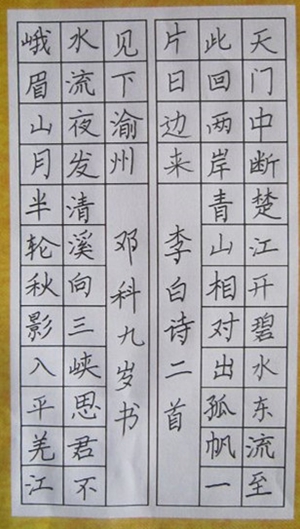 天门中断楚江开碧水东流至
此回两岸青山相对出孤帆一
片日边来
李白诗二首
峨眉山月半轮秋影入平羌江
水流夜发清溪向三峡思君不
见下渝州
邓科九岁书